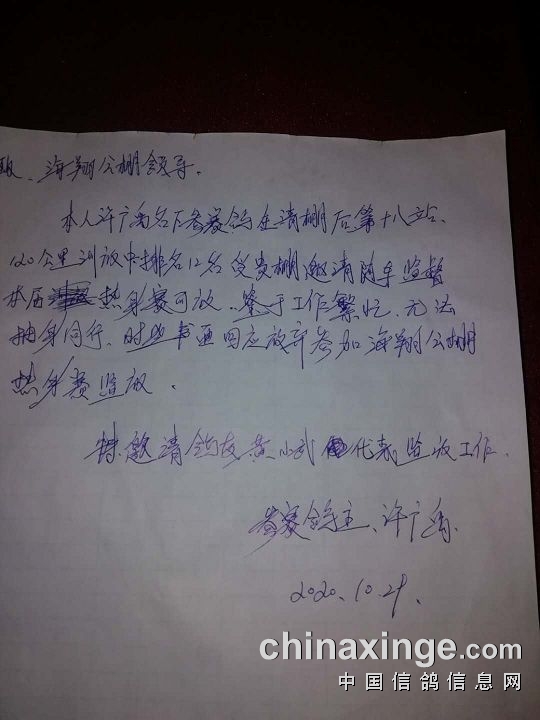 海翔公棚领导。
本人许广禹名下参赛鸽在清棚后第十八站、
120公里训放中排名12名 受贵棚邀请随车监督
本届 热身赛司放、鉴于工作繁忙、无法
抽身同行、时 书面回应放弃参加海翔公棚
热身赛监放。
特邀请鸽友黄小武 代表监放工作。
参赛鸽主、许广禹.
2020、10.29.
chinaxinge.com
中国信鸽信息网